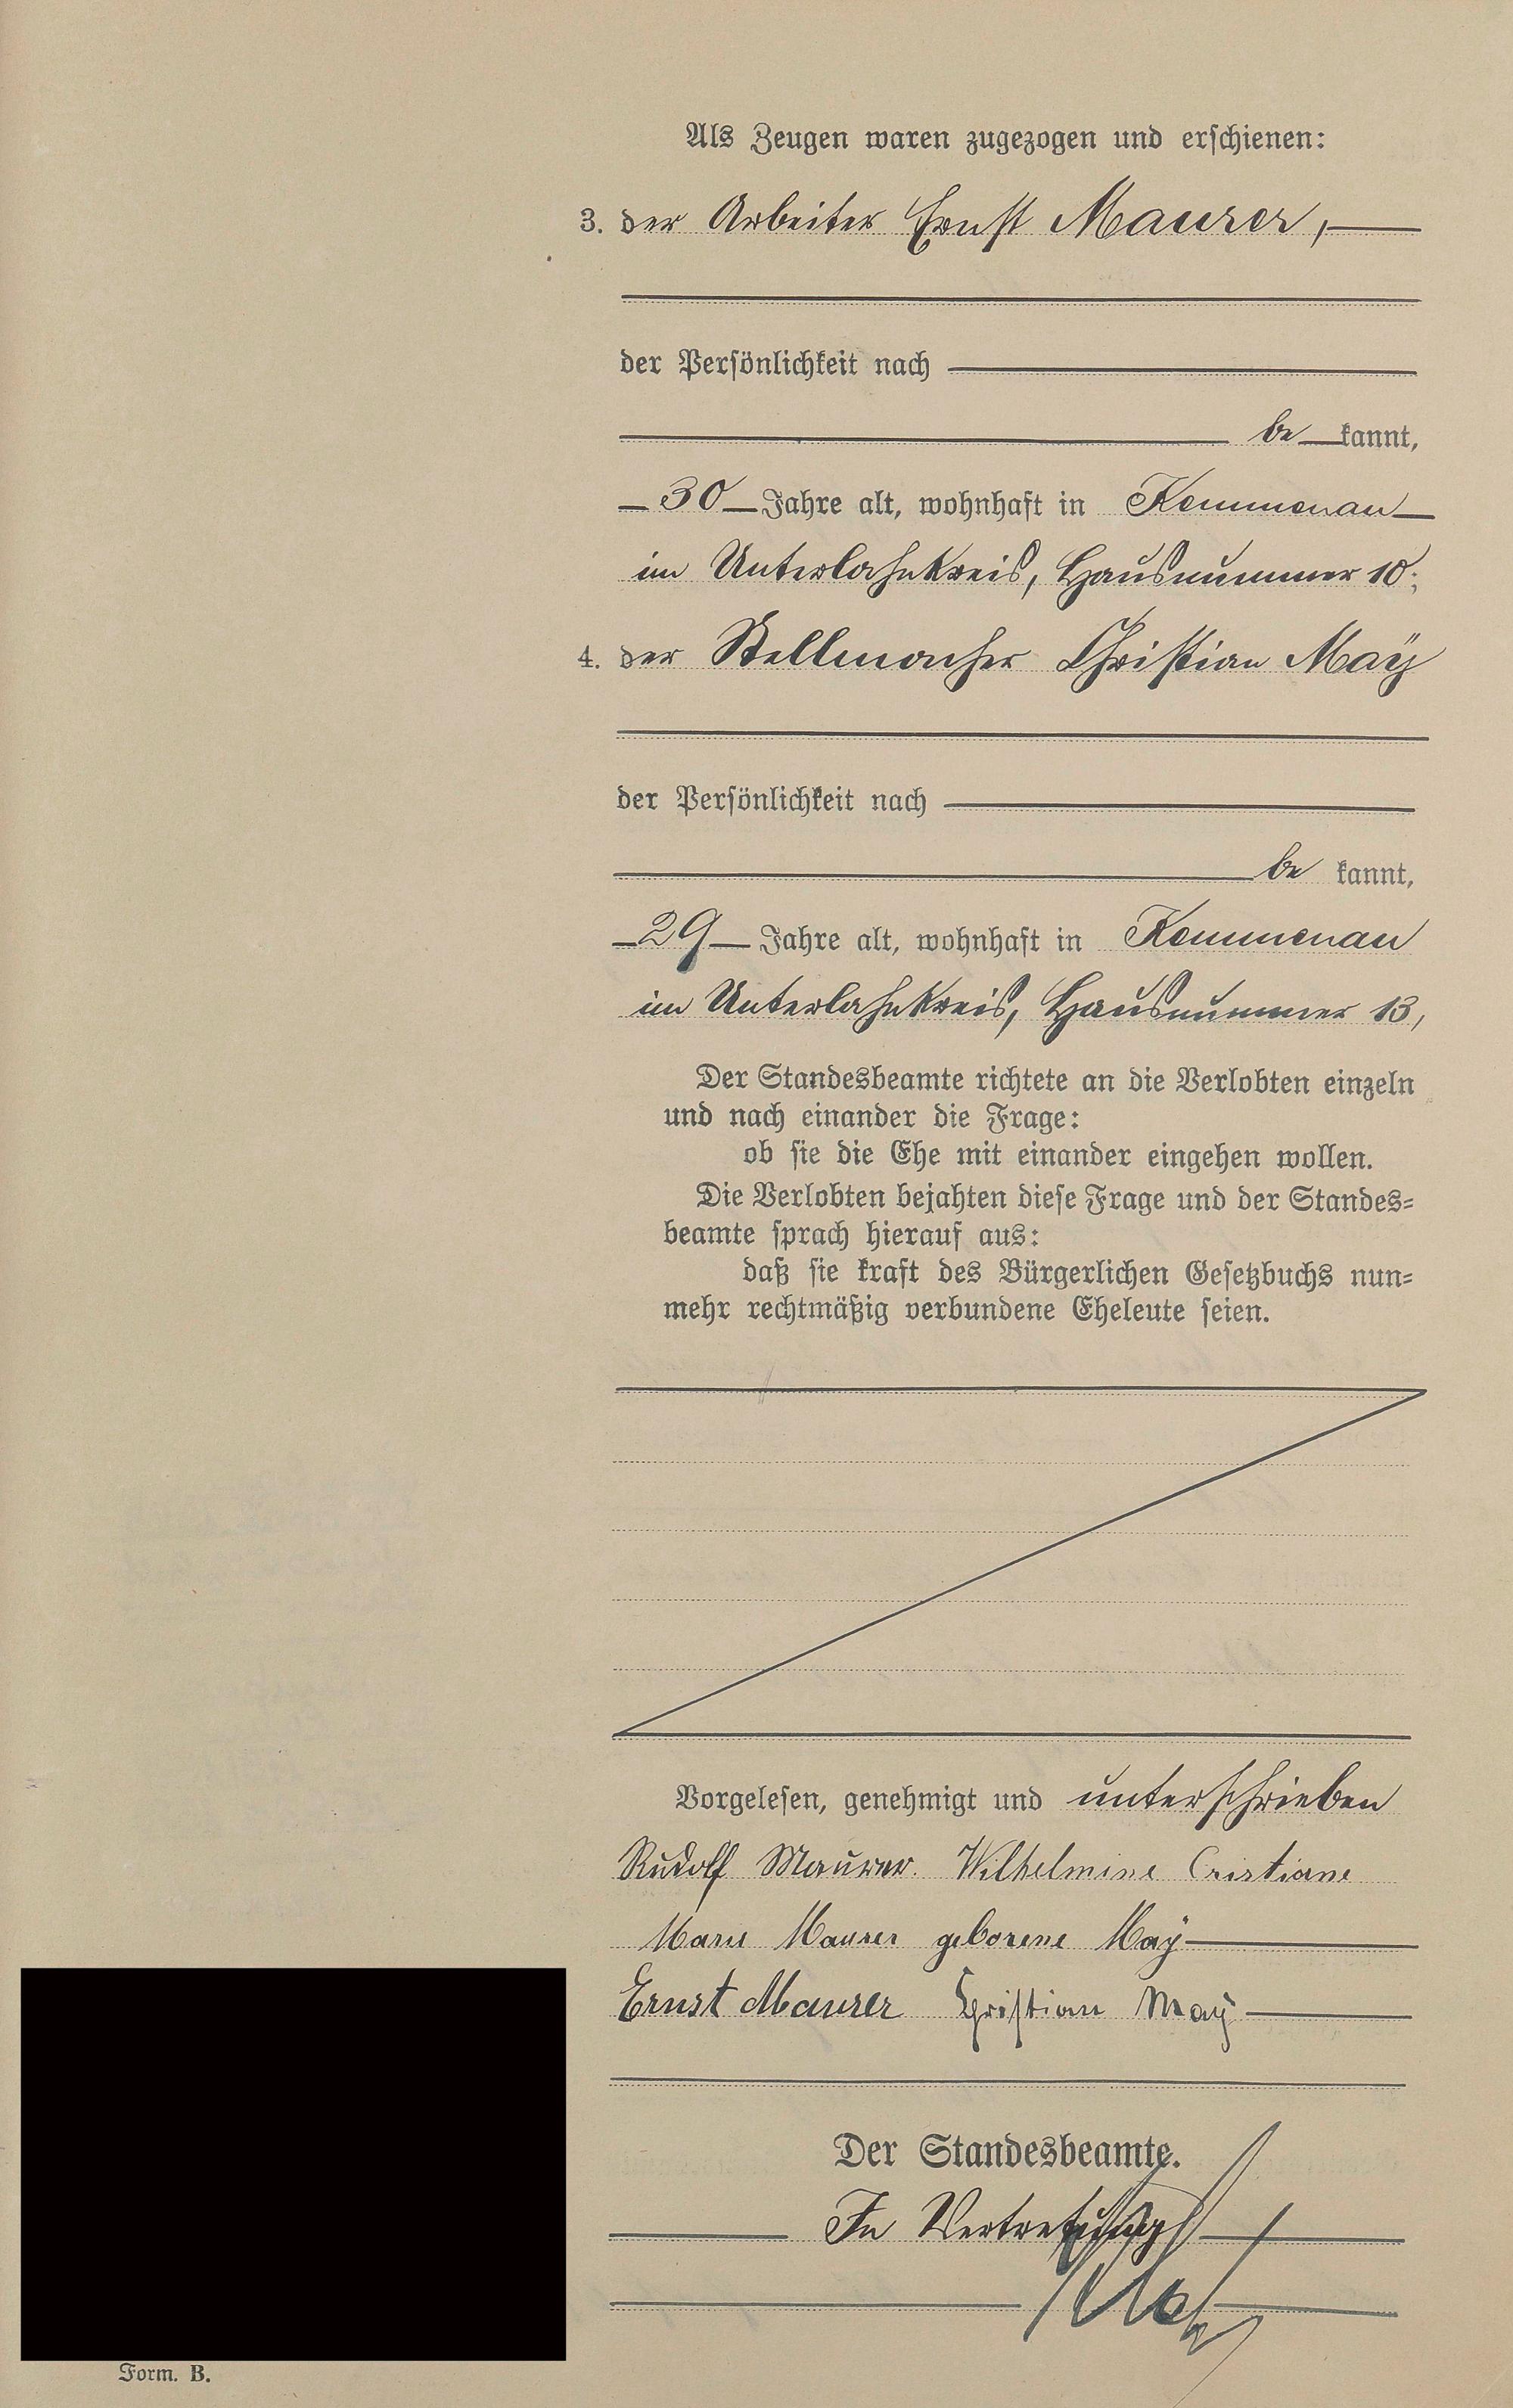 Als Zeugen waren zugezogen und erschienen:
3. der Arbeiter Ernst Maurer,
der Persönlichkeit nach
be kannt,
30 Jahre alt, wohnhaft in Kemmenau
im Unterlahnkreis, Hausnummer 10;
4. der Stellmacher Christian Maÿ
der Persönlichkeit nach
be kannt,
29 Jahre alt, wohnhaft in Kemmenau
im Unterlahnkreis, Hausnummer 13,
Der Standesbeamte richtete an die Verlobten einzeln
und nach einander die Frage:
ob sie die Ehe mit einander eingehen wollen.
Die Verlobten bejahten diese Frage und der Standes=
beamte sprach hierauf aus:
daß sie kraft des Bürgerlichen Gesetzbuchs nun=
mehr rechtmäßig verbundene Eheleute seien.
Vorgelesen, genehmigt und unterschrieben
Rudolf Maurer. Wilhelmine Cristiane
Marie Maurer geborene Maÿ
Ernst Maurer Christian Maÿ
Der Standesbeamte.
In Vertretung
Form. B.